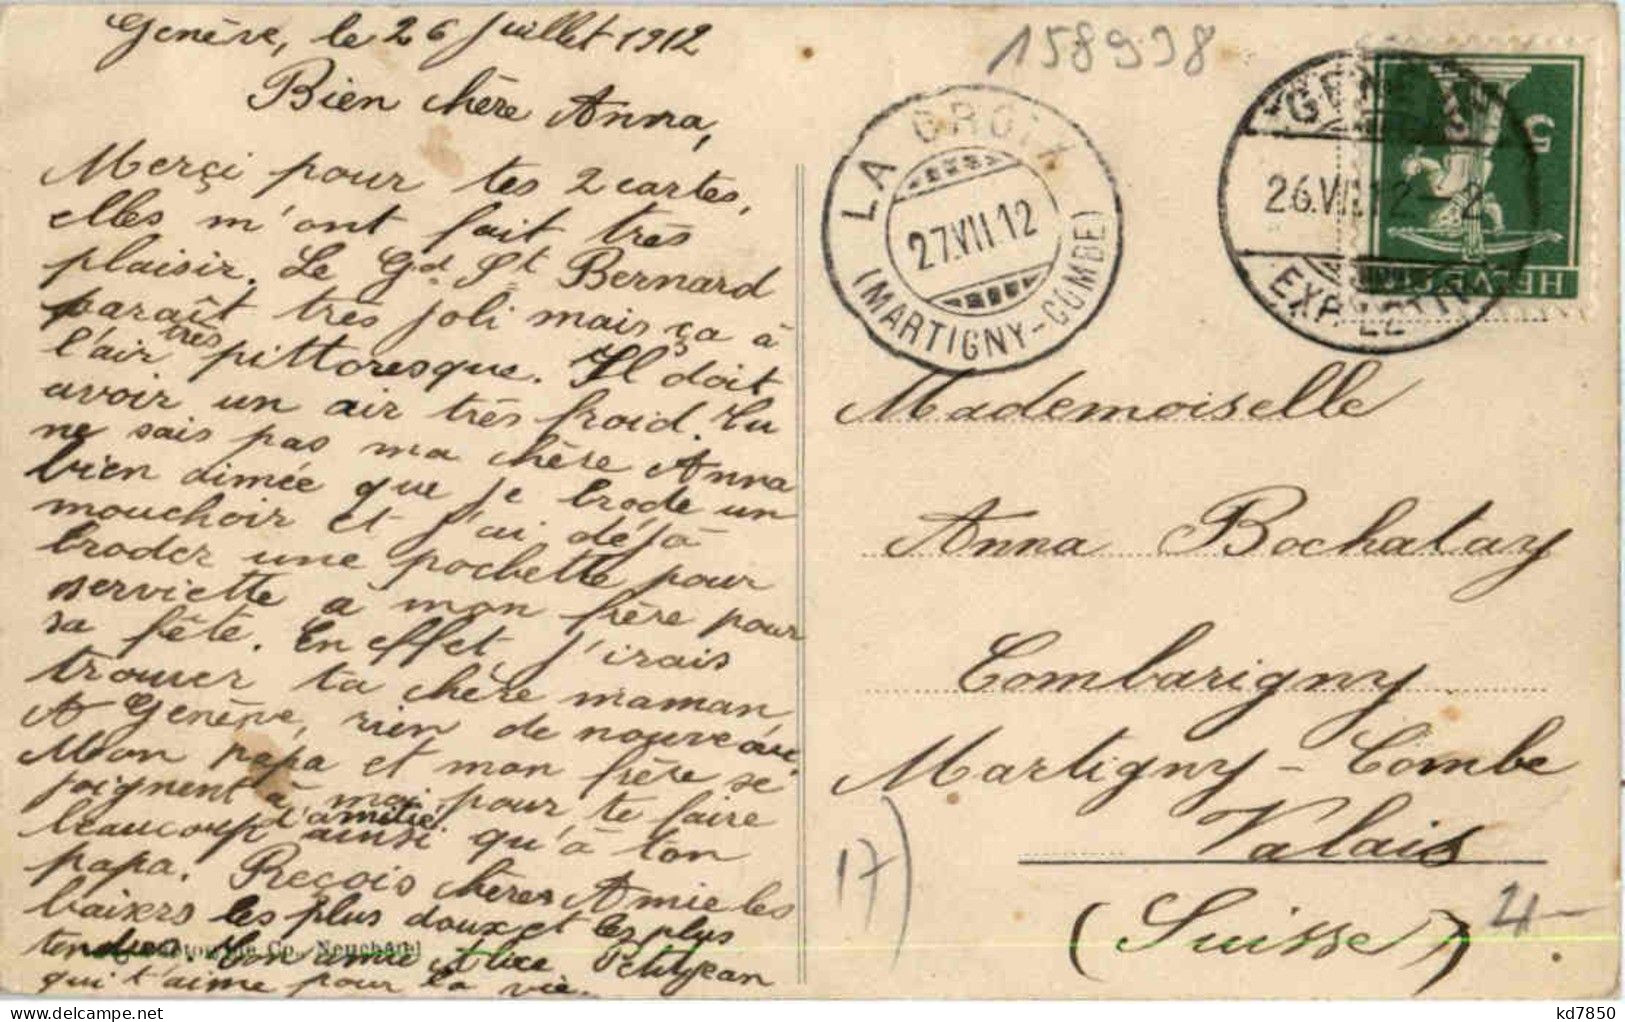 Genève, le 26 Juillet 1912
Bien chère Anna,
Merçi pour tes 2 cartes,
elles m'ont fait très
plaisir. Le Gd St Bernard
paraît très joli mais ça à
l'air très pittoresque. Il doit
avoir un air très froid. Tu
ne sais pas ma chère Anna
bien aimée que je brode un
mouchoir et j'ai déjà
broder une pochette pour
serviette a mon frère pour
sa fête. En effet j'irais
trouver ta chère maman,
A Genève, rien de nouveau
Mon papa et mon frère se
joignent à moi pour te faire
beaucoup d'amitié ainsi qu'à ton
papa. Reçois chères Amie les
baisers les plus doux et les plus
tendres Ton amie Alice Petitjean
qui t'aime pour la vie.
Co., Neuchâtel
158998
LA CROIX
27.VII.12
(MARTIGNY-COMBE)
26.VII.12-2
EXP. LETTR.
5
HELVETIA
Mademoiselle
Anna Bochatay
Combarigny
Martigny-Combe
Valais
(Suisse)
17)
4-
kd7850